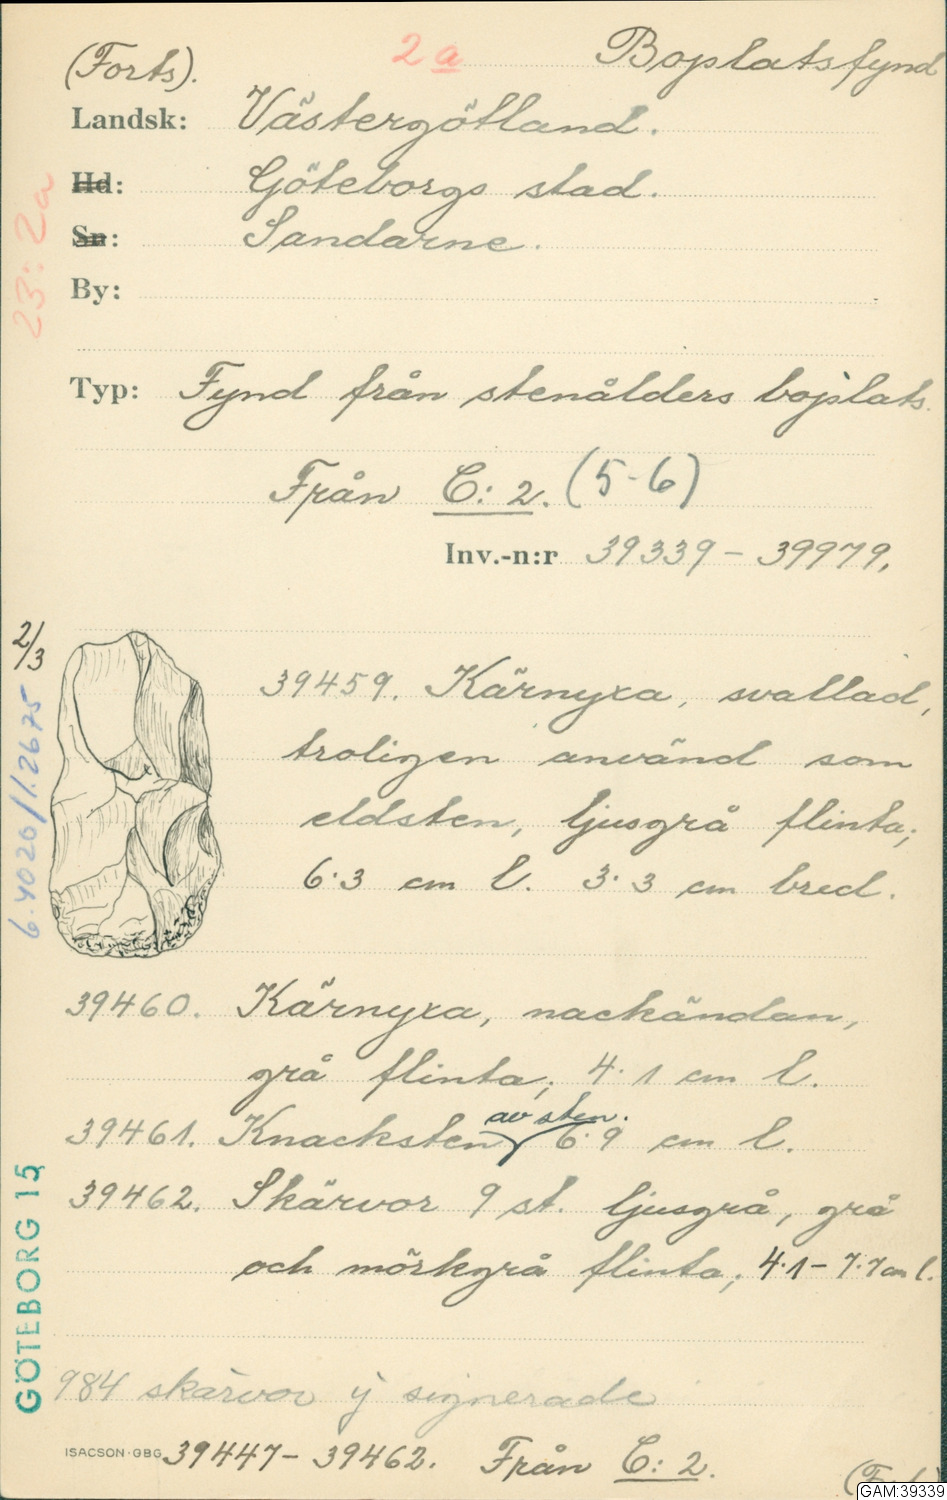 (Forts). 2a Boplatsfynd
Landsk: Västergötland.
Hd: Göteborgs stad.
Sn: Sandarne.
By:
Typ: Fynd från stenålders boplats.
Från C: 2. (5-6)
Inv.-n:r 39339 – 39979.
23: 2a
2/3
39459. Kärnyxa, svallad,
troligen använd som
eldsten, ljusgrå flinta;
6.3 cm l. 3.3 cm bred.
6.4020/1.2675
39460. Kärnyxa, nackändan,
grå flinta; 4.1 cm l.
39461. Knacksten av sten. 6.9 cm l.
39462. Skärvor 9 st. ljusgrå, grå
och mörkgrå flinta; 4.1 – 7.7 cm l.
GÖTEBORG 15
984 skärvor ej signerade
ISACSON·GBG 39447 – 39462. Från C: 2.
GAM:39339